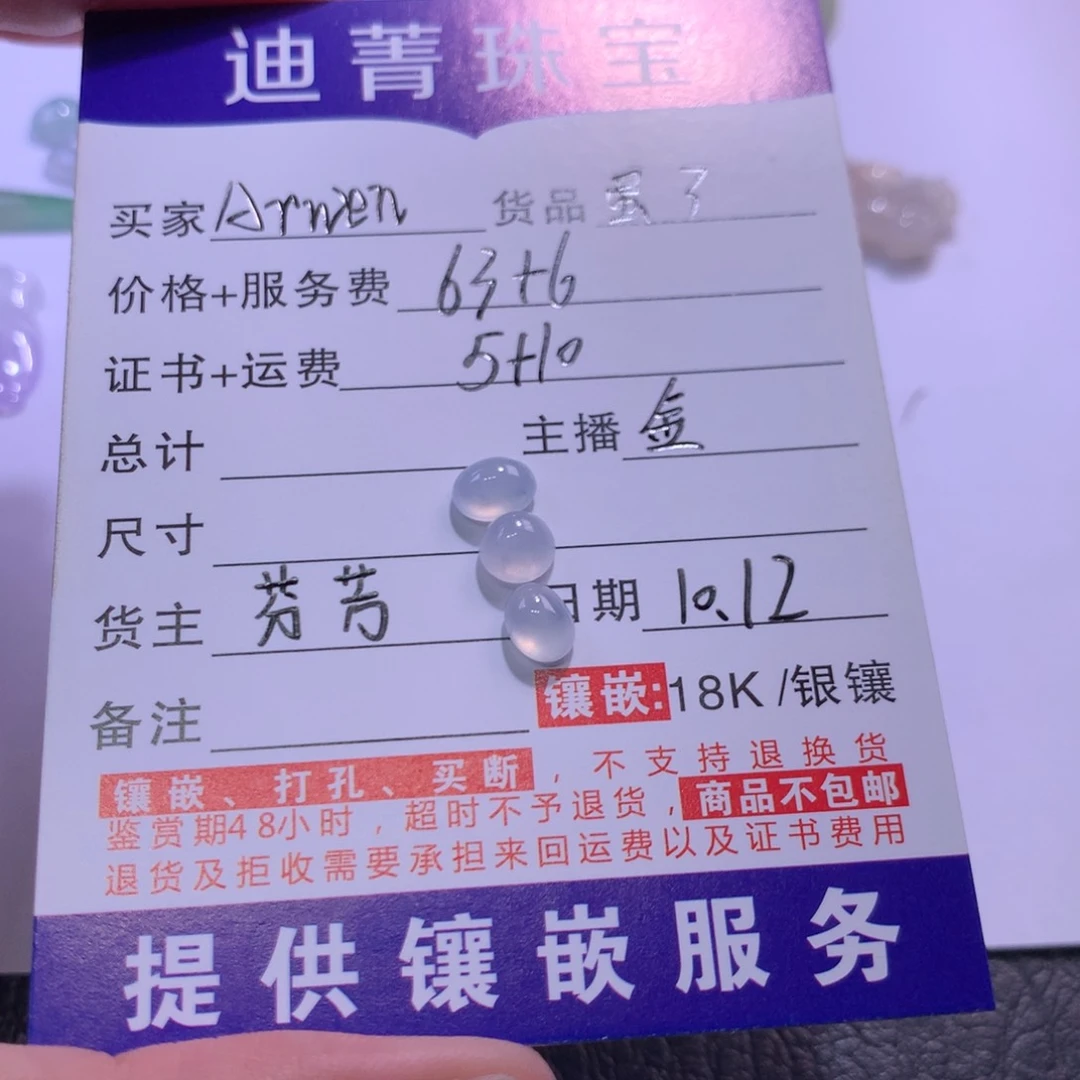 迪菁珠宝
买家 Arwen 货品 蛋了
价格+服务费 63+6
证书+运费 5+10
总计 主播 金
尺寸
货主 芬芳 日期 10.12
备注 镶嵌:18K/银镶
镶嵌、打孔、买断,不支持退换货
鉴赏期48小时,超时不予退货,商品不包邮
退货及拒收需要承担来回运费以及证书费用
提供镶嵌服务